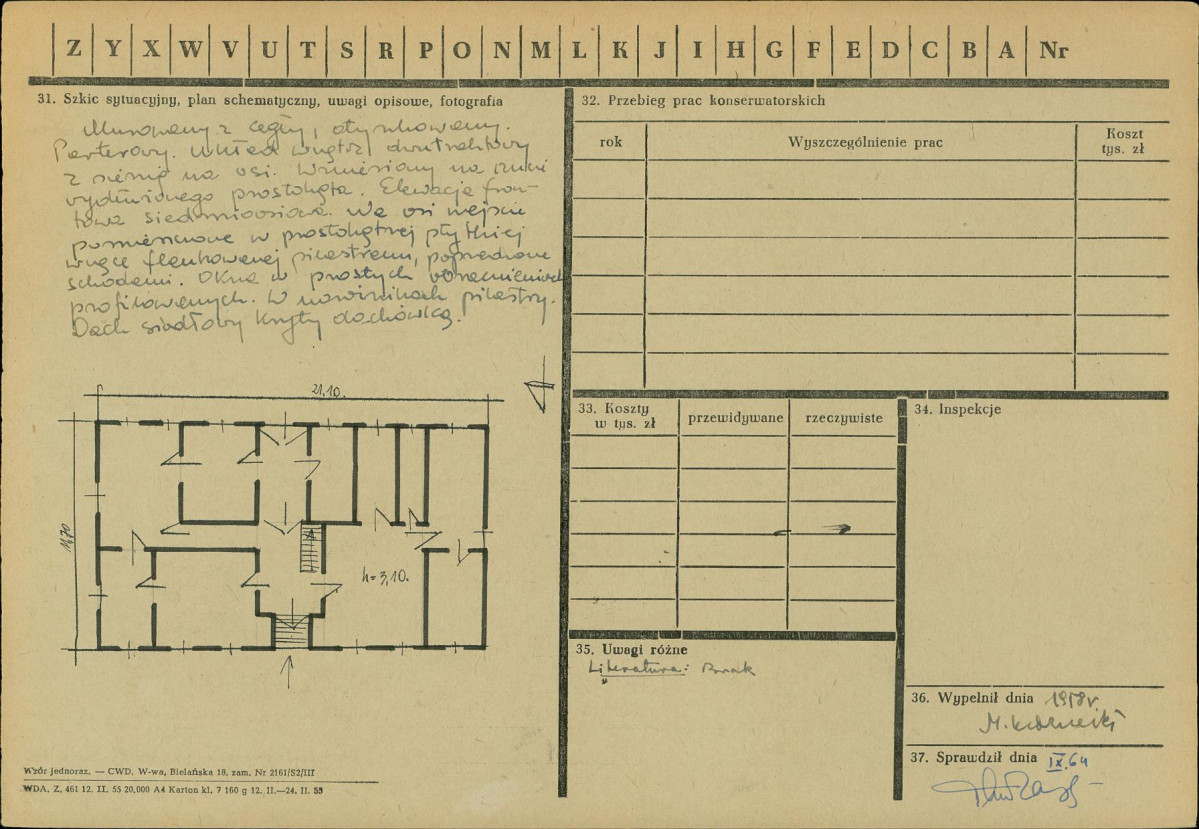 Z Y X W V U T S R P O N M L K J I H G F E D C B A Nr
31. Szkic sytuacyjny, plan schematyczny, uwagi opisowe, fotografia
Murowany z cegły, otynkowany.
Parterowy. Układ wnętrz dwutraktowy
z sienią na osi. Wzniesiony na rzucie
wydłużonego prostokąta. Elewacja fron-
towa siedmioosiowa. Na osi wejście
pomieszczone w prostokątnej płytkiej
wnęce flankowanej pilastrami, poprzedzone
schodami. Okna w prostych obramieniach
profilowanych. W narożnikach pilastry.
Dach siodłowy kryty dachówką.
21,10.
11,70
h=3,10.
Wzór jednoraz. — CWD. W-wa, Bielańska 18, zam. Nr 2161/S2/III
WDA. Z. 461 12. II. 55 20,000 A4 Karton kl. 7 160 g 12. II.—24. II. 55
32. Przebieg prac konserwatorskich
rok
Wyszczególnienie prac
Koszt
tys. zł
33. Koszty
w tys. zł
przewidywane
rzeczywiste
34. Inspekcje
35. Uwagi różne
Literatura: Brak
36. Wypełnił dnia 1958 r.
37. Sprawdził dnia IX.64